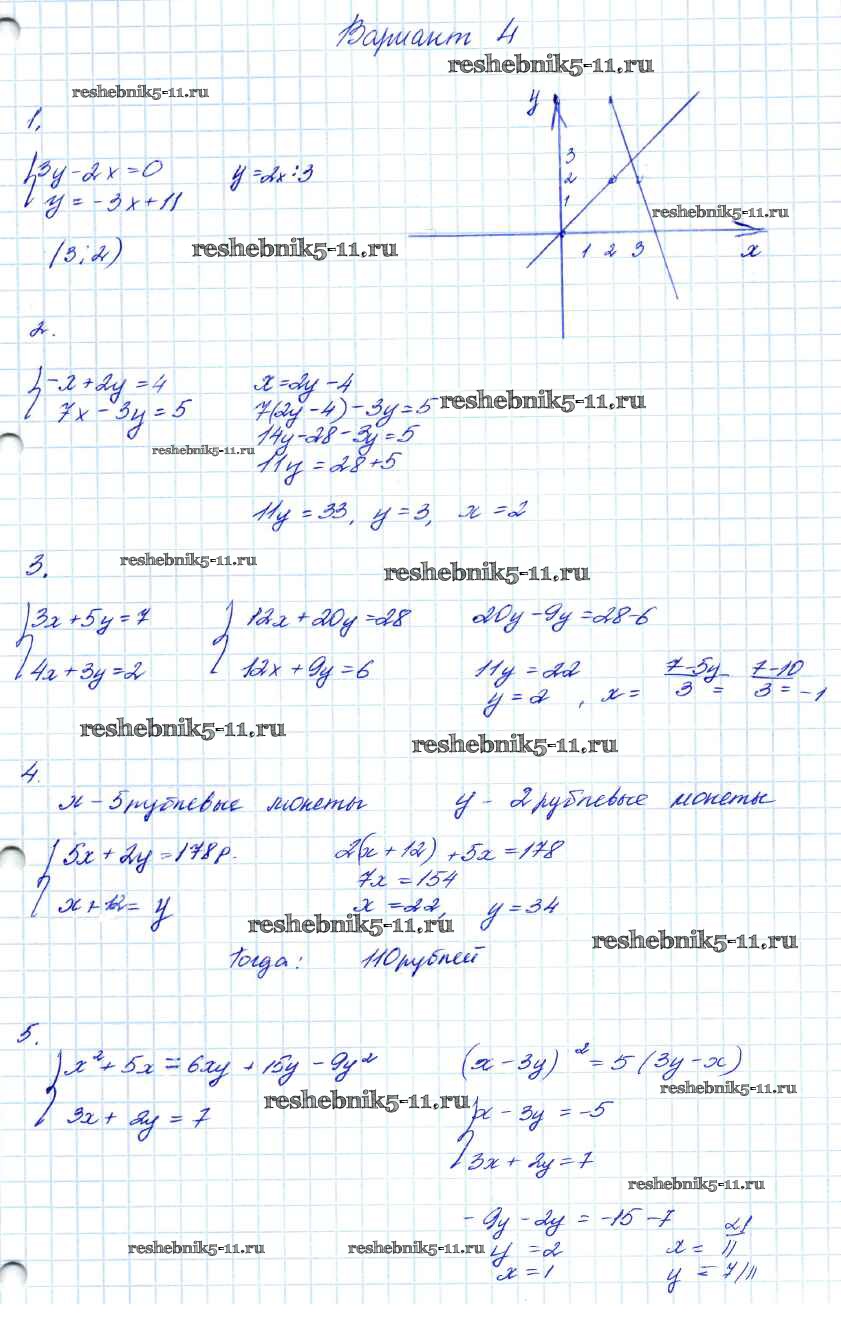 Вариант 4
reshebnik5-11.ru
reshebnik5-11.ru
1.
3y - 2x = 0 y = 2x : 3
y = -3x + 11
(3; 2)
reshebnik5-11.ru
y
3
2
1
reshebnik5-11.ru
1 2 3 x
2.
-x + 2y = 4 x = 2y - 4
7x - 3y = 5 7(2y - 4) - 3y = 5
reshebnik5-11.ru
14y - 28 - 3y = 5
reshebnik5-11.ru
11y = 28 + 5
11y = 33, y = 3, x = 2
3.
reshebnik5-11.ru
reshebnik5-11.ru
3x + 5y = 7 12x + 20y = 28 20y - 9y = 28 - 6
4x + 3y = 2 12x + 9y = 6 11y = 22
y = 2, x = (7 - 5y)/3 = (7 - 10)/3 = -1
reshebnik5-11.ru
reshebnik5-11.ru
4.
x - 5 рублевые монеты y - 2 рублевые монеты
5x + 2y = 178 р. 2(x + 12) + 5x = 178
7x = 154
x + 12 = y x = 22, y = 34
reshebnik5-11.ru
reshebnik5-11.ru
Тогда: 110 рублей
5.
x² + 5x = 6xy + 15y - 9y² (x - 3y)² = 5(3y - x)
reshebnik5-11.ru
3x + 2y = 7 x - 3y = -5
reshebnik5-11.ru
3x + 2y = 7
reshebnik5-11.ru
-9y - 2y = -15 - 7
reshebnik5-11.ru
reshebnik5-11.ru
y = 2 x = 21/11
x = 1 y = 7/11